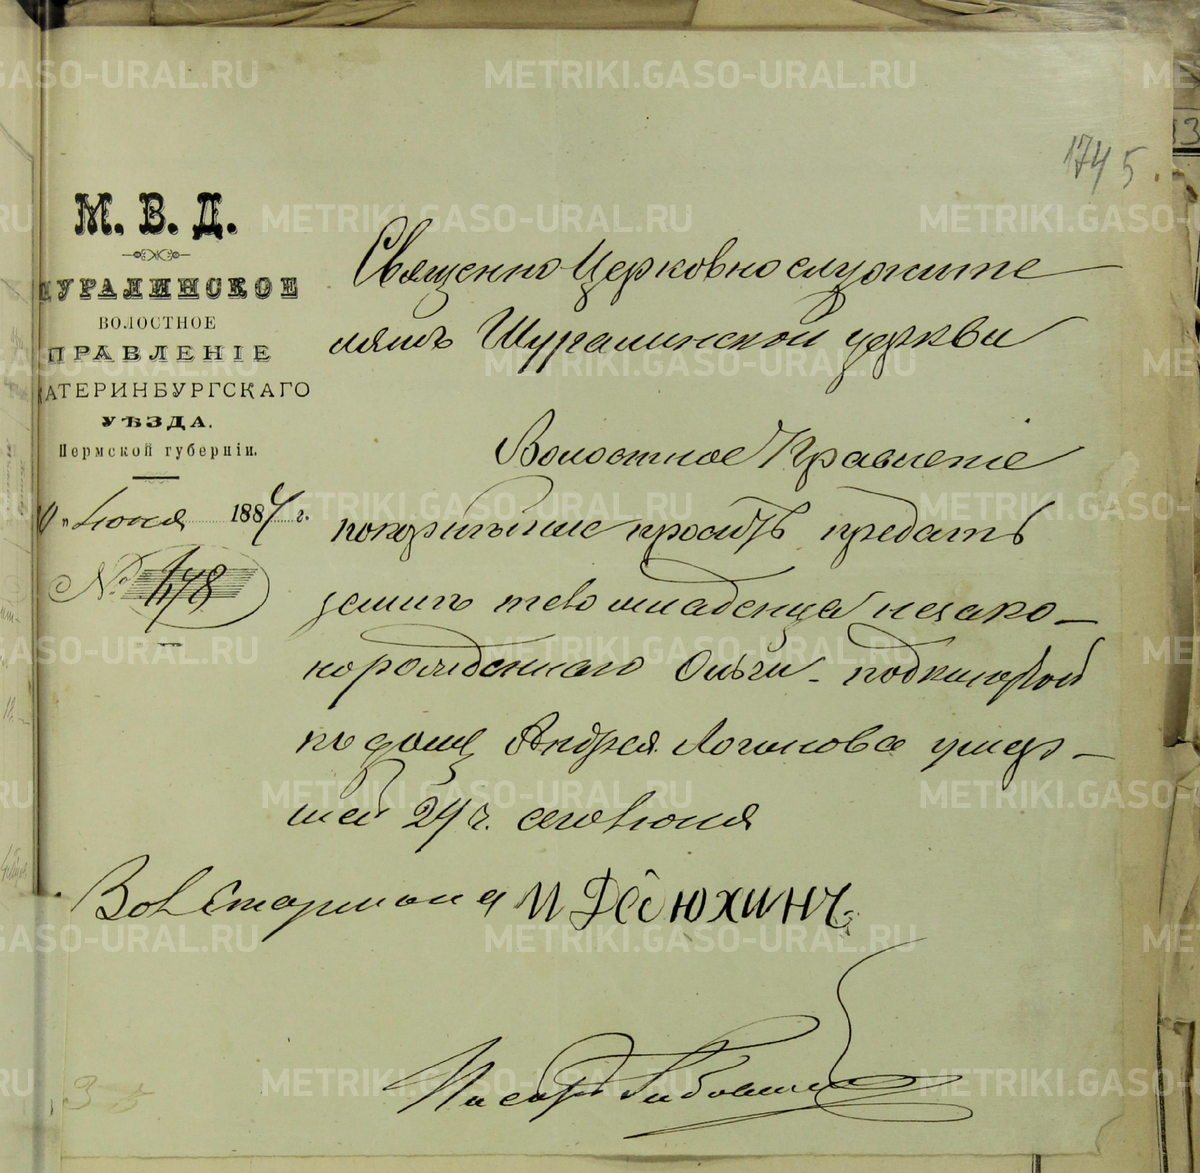 METRIKI.GASO-URAL.RU
1745
М. В. Д.
ШУРАЛИНСКОЕ
ВОЛОСТНОЕ
ПРАВЛЕНІЕ
КАТЕРИНБУРГСКАГО
УѢЗДА.
Пермской губерніи.
Іюня 1884 г.
№ 478
Священно Церковнослужите
лямъ Шуралинской церкви
Волостное Правленіе
покорнѣйше проситъ предать
земли тело младенца незако-
норожденнаго Ольги подкинутой
къ дому Андрея Логинова умер-
шей 24 ч. сего Іюня
Вол Старшина И Дедюхинъ
Писарь